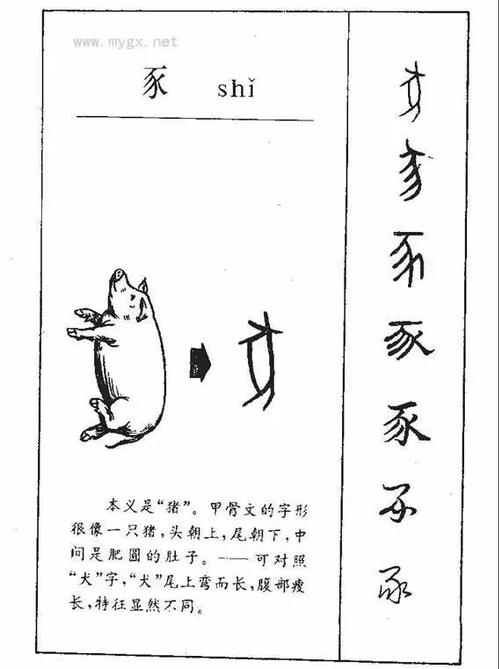 www.mygx.net
豕 shǐ
本义是“猪”。甲骨文的字形
很像一只猪，头朝上，尾朝下，中
间是肥圆的肚子。——可对照
“犬”字，“犬”尾上弯而长，腹部瘦
长，特征显然不同。
豕
豕
豕
豕
豕
豕
豕